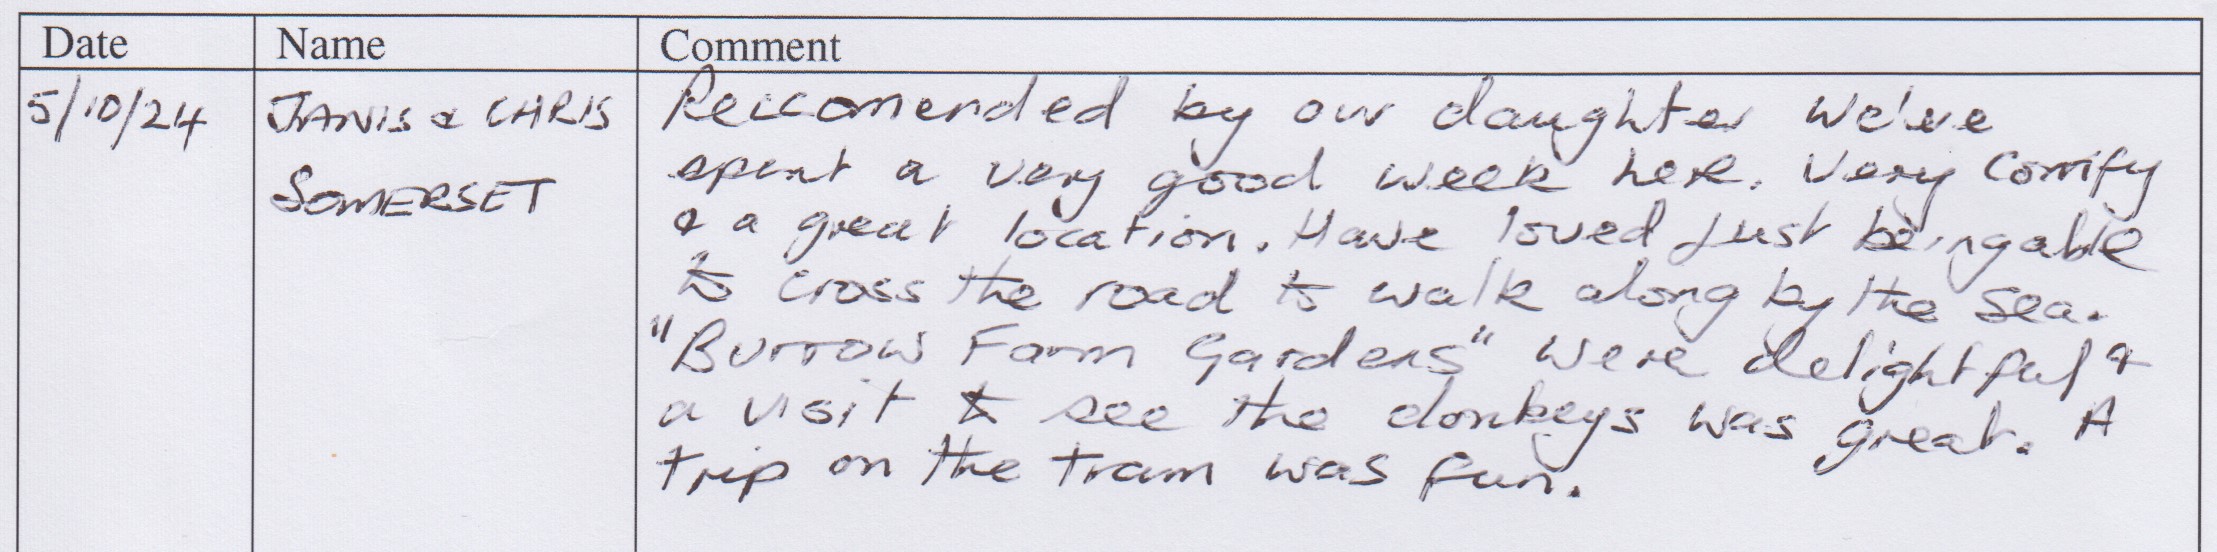 Date Name Comment
5/10/24 JANIS & CHRIS Reccomended by our daughter We've
SOMERSET spent a very good week here. Very Comfy
& a great location. Have loved just being able
to cross the road to walk along by the sea.
"Burrow Farm Gardens" were delightful &
a visit to see the donkeys was great. A
trip on the tram was fun.